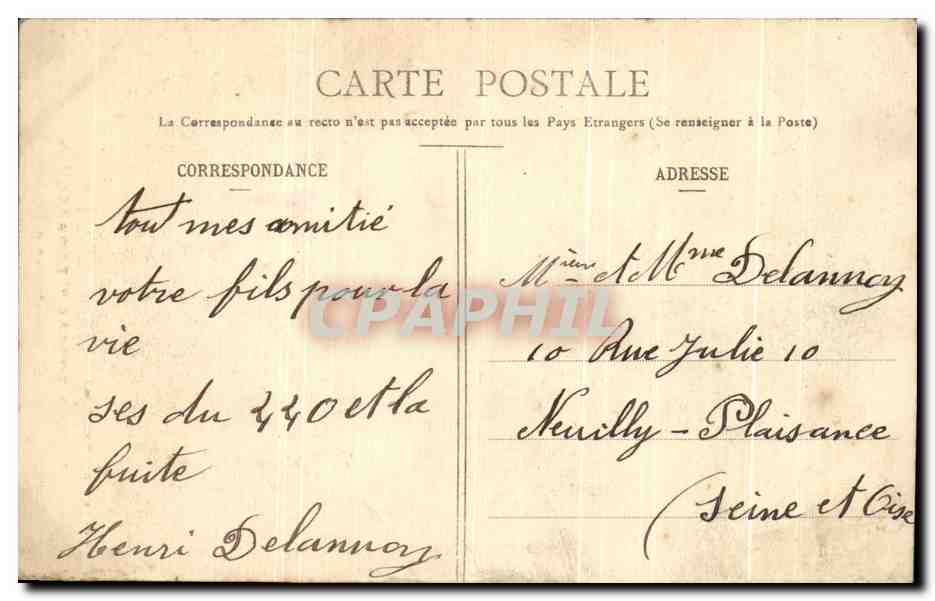 CARTE POSTALE
La Correspondance au recto n'est pas acceptée par tous les Pays Etrangers (Se renseigner à la Poste)
CORRESPONDANCE
tout mes amitié
votre fils pour la
vie
ses du 440 et la
fuite
Henri Delannoy
ADRESSE
Mr et Mme Delannoy
10 Rue Julie 10
Neuilly - Plaisance
(Seine et Oise
CPAPHIL